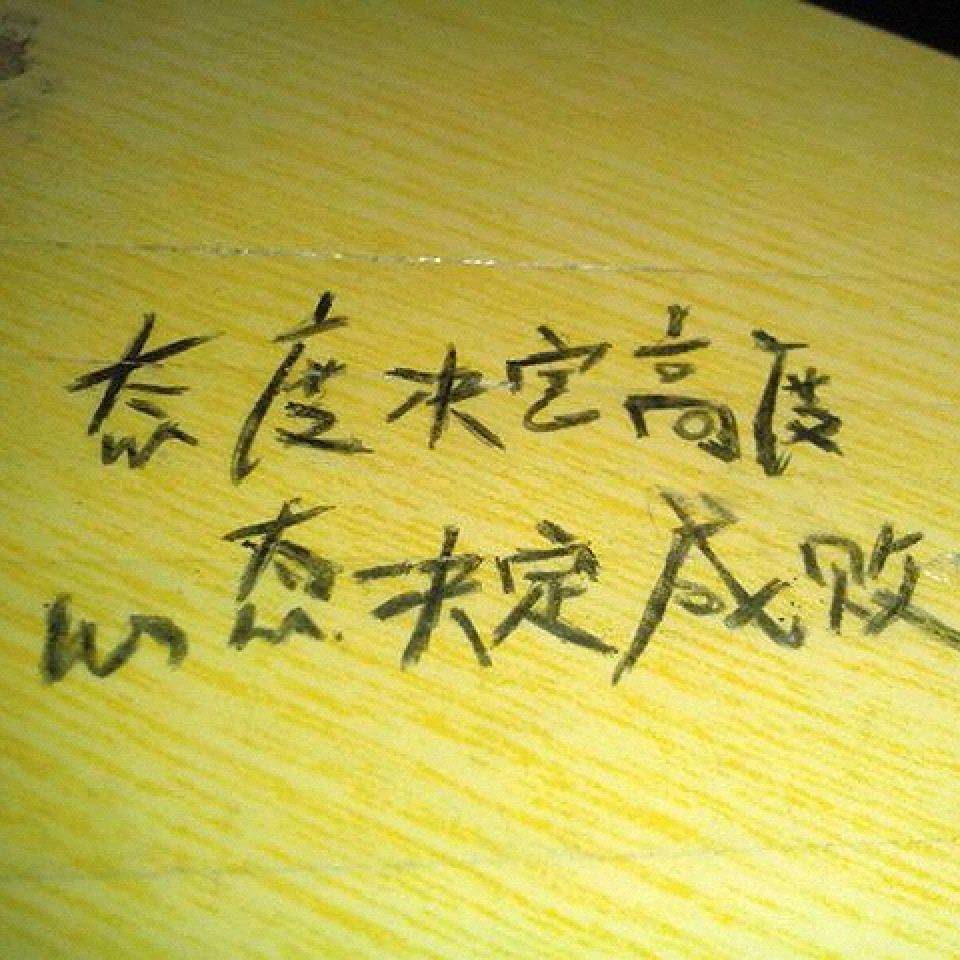 态度决定高度
心态决定成败